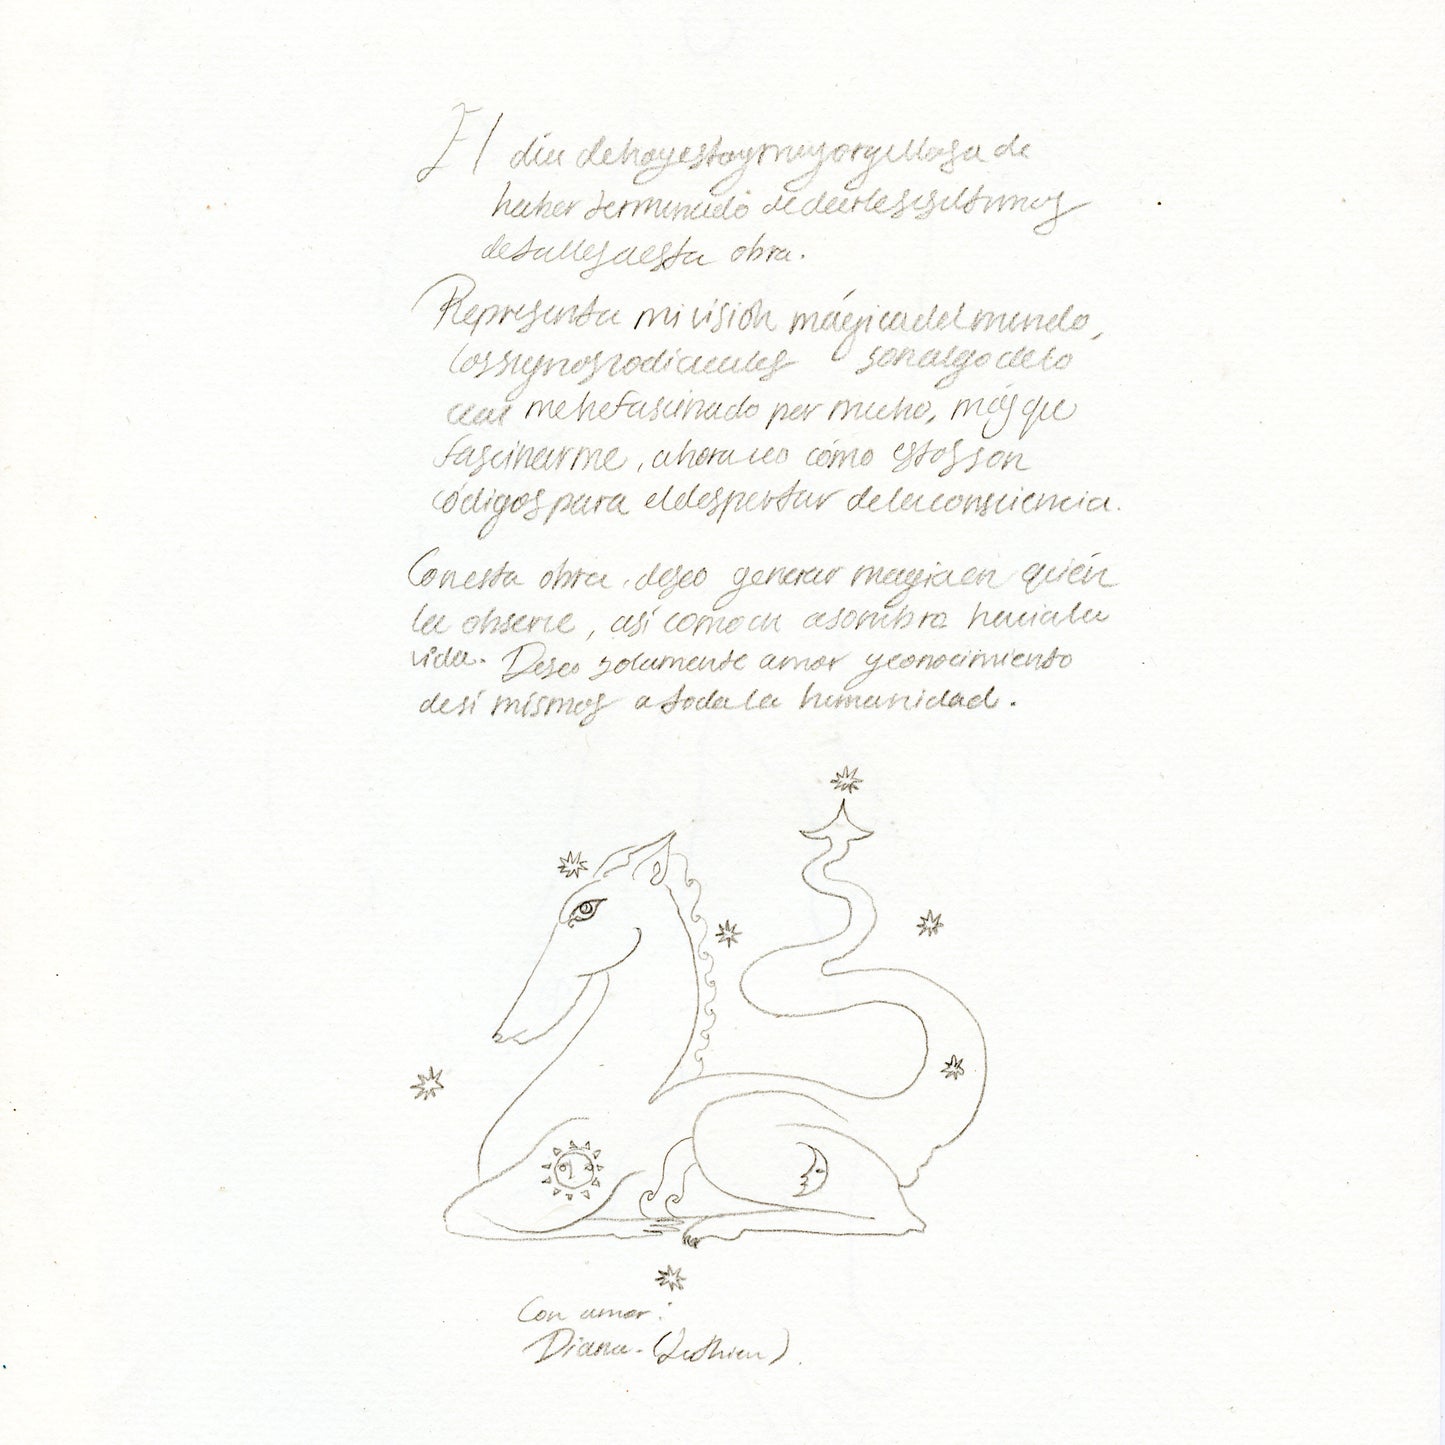 El día de hoy estoy muy orgullosa de
haber terminado de darles los últimos
detalles a esta obra.
Representa mi visión mágica del mundo,
los signos zodiacales son algo de lo
cual me he fascinado por mucho, más que
fascinarme, ahora veo cómo estos son
códigos para el despertar de la consciencia.
Con esta obra, deseo generar magia en quién
la observe, así como un asombro hacia la
vida. Deseo solamente amor y conocimiento
de sí mismos a toda la humanidad.
Con amor:
Diana.